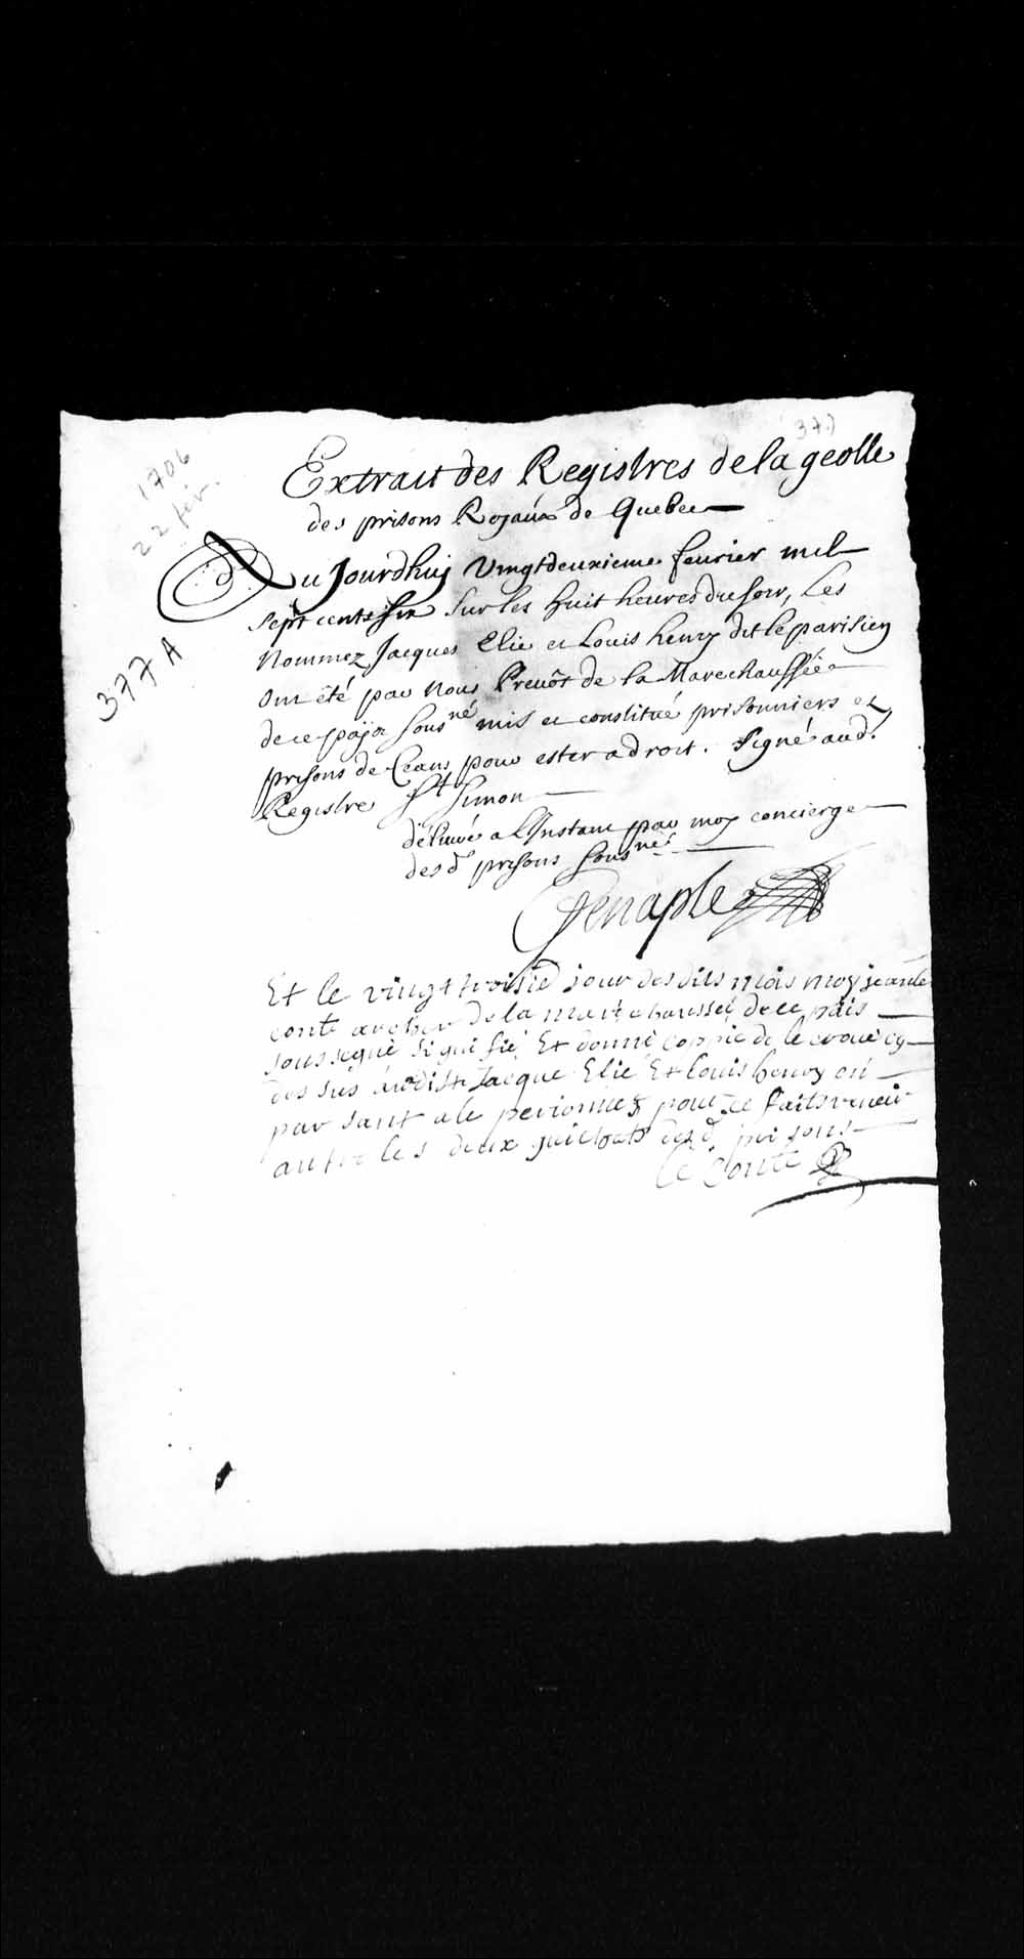 377
1706
22 fév.
377 A
Extrait des Registres de la geolle
des prisons Royaúx de Quebec
Du Jourdhuy vingtdeuxieme feurier mil
sept cents six sur les huit heures du soir, Les
Nommez Jacques Elie et Louis henry dit le parisien
Ont êté par Nous Preuôt de la Marechaussée
de ce païs sousné mis et constitué prisonniers es
prisons de Ceans pour ester a droit. Signé aud.
Registre St Simon
déliuré a l'Instant par moy concierge
des d. prisons sousné
Genaple
Et le vingt troisie jour des dits mois moy jean le
conte archer de la marechaussé de ce païs
soussegné signifié Et donné coppie de le croue cy
des sus audist Jacque Elie Et louis henry en
par lant a le personnes pour ce faits veneir
antre les deux guichets desd. prisons
le Conte